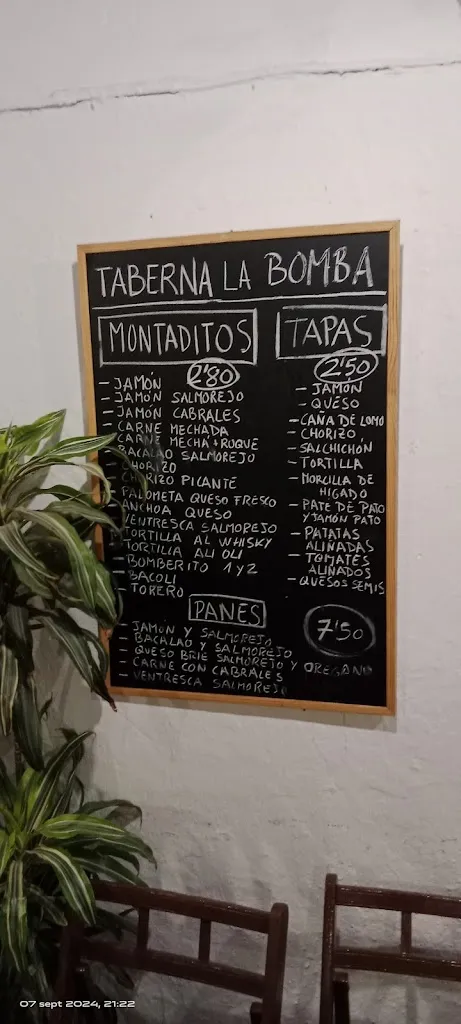 TABERNA LA BOMBA
MONTADITOS
2'80
- JAMÓN
- JAMÓN SALMOREJO
- JAMÓN CABRALES
- CARNE MECHADA
- CARNE MECHA + ROQUE
- BACALAO SALMOREJO
CHORIZO
CHORIZO PICANTE
PALOMETA QUESO FRESCO
ANCHOA QUESO
VENTRESCA SALMOREJO
TORTILLA AL WHISKY
TORTILLA ALI OLI
- BOMBERITO 1 y 2
- BACOLI
- TORERO
TAPAS
2'50
- JAMÓN
- QUESO
- CAÑA DE LOMO
- CHORIZO
- SALCHICHÓN
- TORTILLA
- MORCILLA DE
HIGADO
- PATE DE PATO
Y JAMÓN PATO
- PATATAS
ALIÑADAS
- TOMATES
ALIÑADOS
- QUESOS SEMIS
PANES
7'50
- JAMÓN Y SALMOREJO
- BACALAO Y SALMOREJO
- QUESO BRIE SALMOREJO Y OREGANO
- CARNE CON CABRALES
- VENTRESCA SALMOREJO
07 sept 2024, 21:22